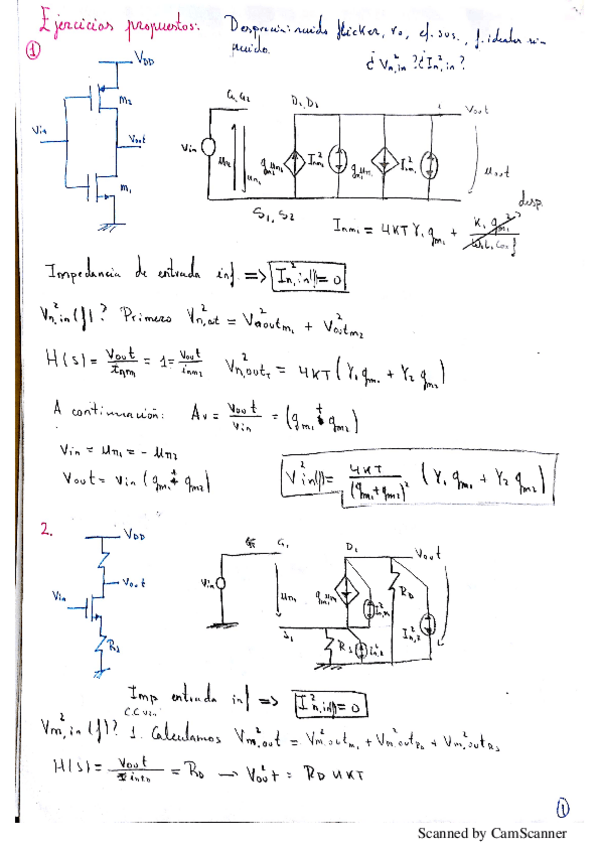 Ejercicios propuestos: Desprecian: ruido flicker, ro, ef. sus., f. ideales sin ruido.
¿Vn,in²? ¿In,in²?
①
VDD
M2
Vin
Vout
M1
G1G2
D1, D2
Vout
Vin
S1, S2
desp.
Inm1 = 4KTγ1gm1 +
Impedancia de entrada inf. => In,in²(f) = 0
Vn,in²(f)? Primero Vn,out² = Vnoutm1² + Voutm2²
H(s) = Vout/Inm = 1 = Vout/inm2 Vn,outT² = 4KT(γ1gm1 + γ2gm2)
A continuación: Av = Vout/Vin = (gm1 + gm2)
Vin = un1 = -un2
Vout = Vin(gm1 + gm2)
V²in(f) = 4KT/(gm1+gm2)² (γ1gm1 + γ2gm2)
2.
VDD
Vout
Vin
RS
G1
D1
Vout
Vin
RD
S1
RS
Imp entrada inf => I²n,in(f) = 0
Vn,in²(f)? 1. Calculamos Vn,out² = Vn,outm1² + Vn,outRD² + Vn,outRS²
H(s) = Vout/Intn = RD → Vout² = RD 4KT
①
Scanned by CamScanner